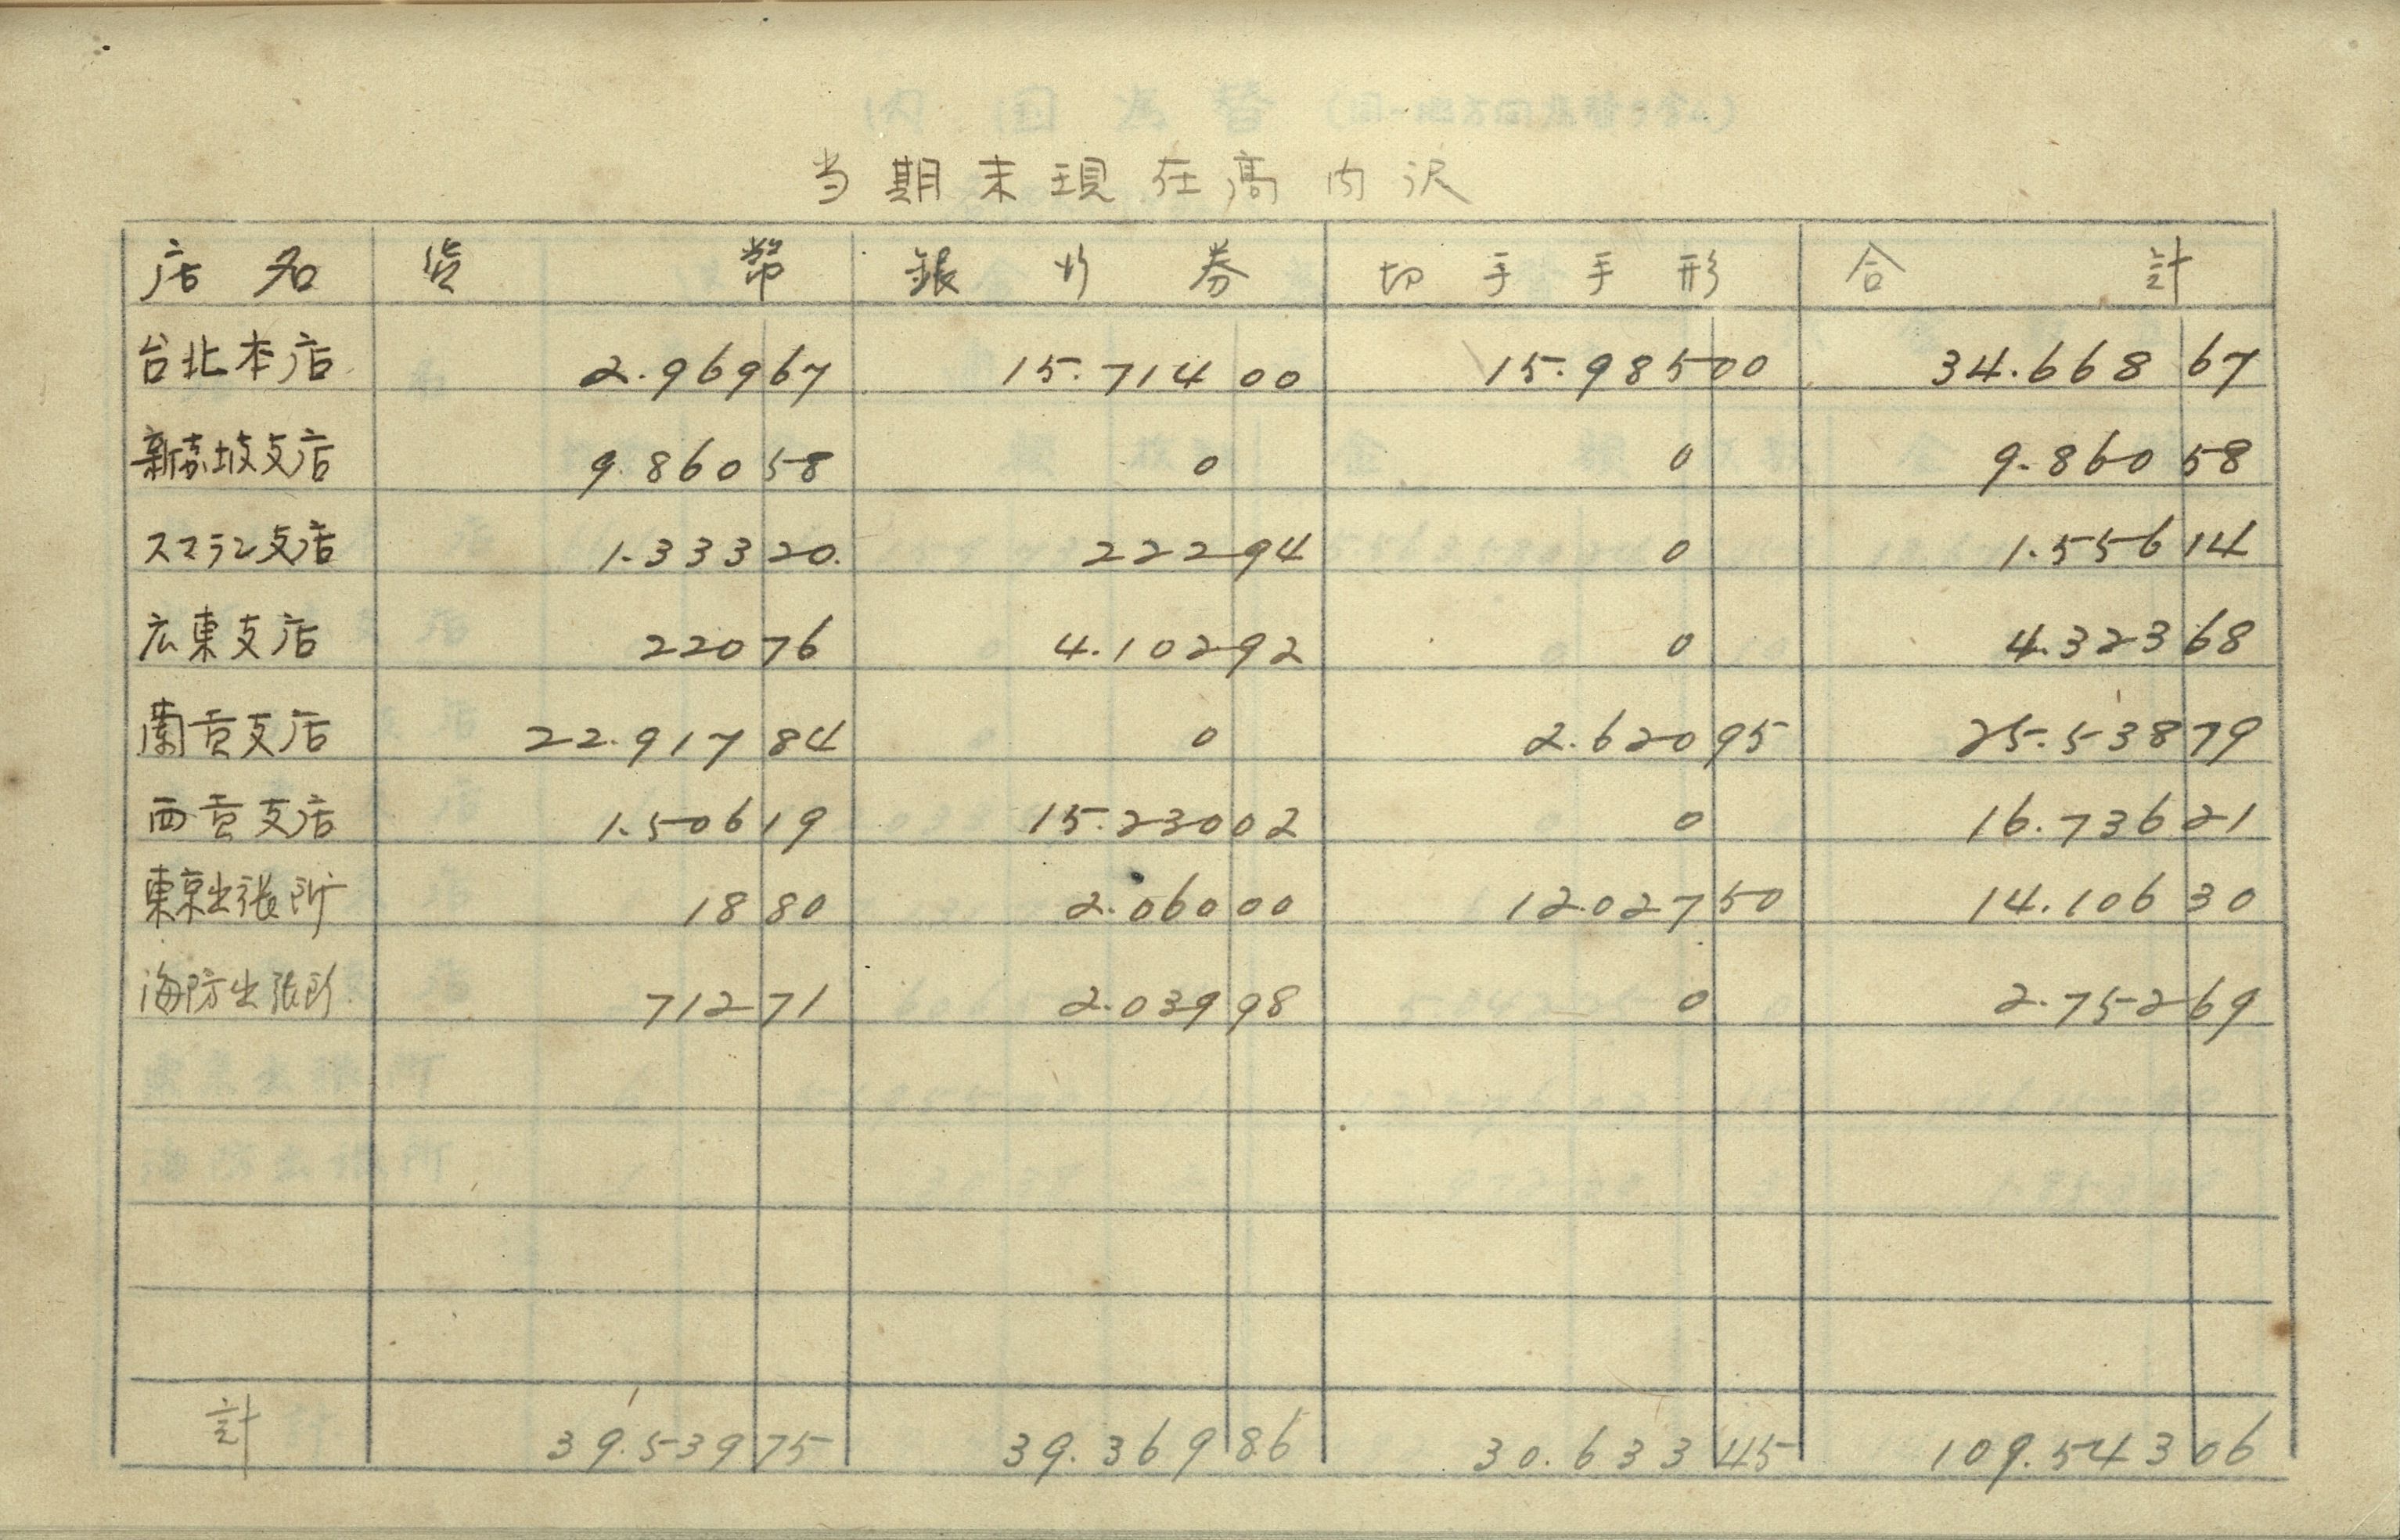 当期末現在高内沢
店名 貨幣 銀行券 切手手形 合計
台北本店 2.969 67 15.714 00 15.985 00 34.668 67
新嘉坡支店 9.860 58 0 0 9.860 58
スマラン支店 1.333 20. 222 94 0 1.556 14
広東支店 220 76 4.102 92 0 4.323 68
蘭貢支店 22.917 84 0 2.620 95 25.538 79
西貢支店 1.506 19 15.230 02 0 16.736 21
東京出張所 18 80 2.060 00 12.027 50 14.106 30
海防出張所 712 71 2.039 98 0 2.752 69
計 39.539 75 39.369 86 30.633 45 109.543 06